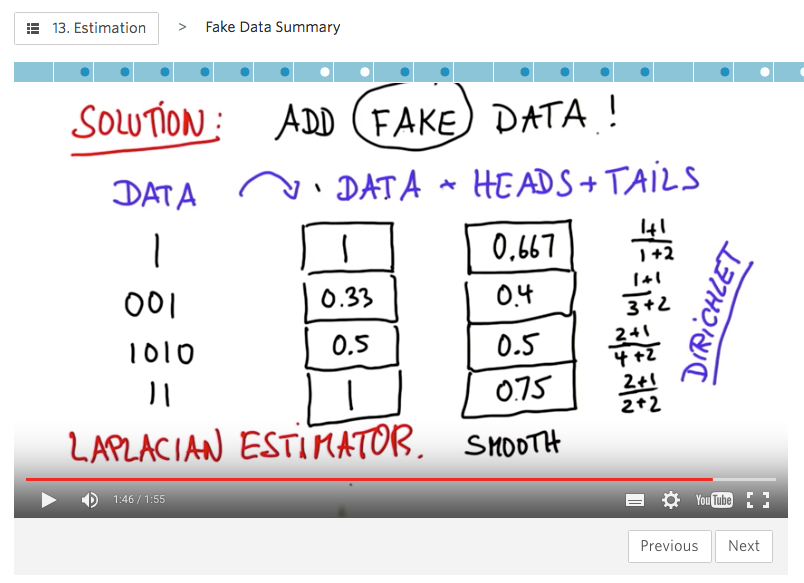 13. Estimation > Fake Data Summary
SOLUTION: ADD FAKE DATA!
DATA DATA + HEADS + TAILS
1 1 0.667 1+1/1+2
001 0.33 0.4 1+1/3+2
1010 0.5 0.5 2+1/4+2
11 1 0.75 2+1/2+2
DIRICHLET
LAPLACIAN ESTIMATOR. SMOOTH
1:46 / 1:55 YouTube
Previous Next